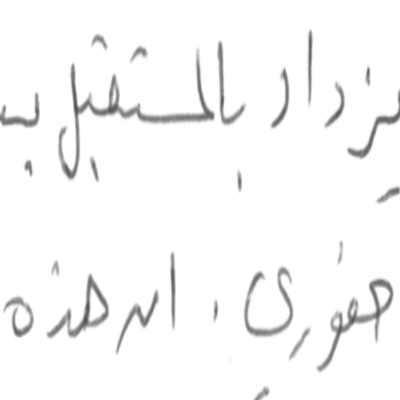 يزداد بالمستقبل ب
حفوري. ان هذه